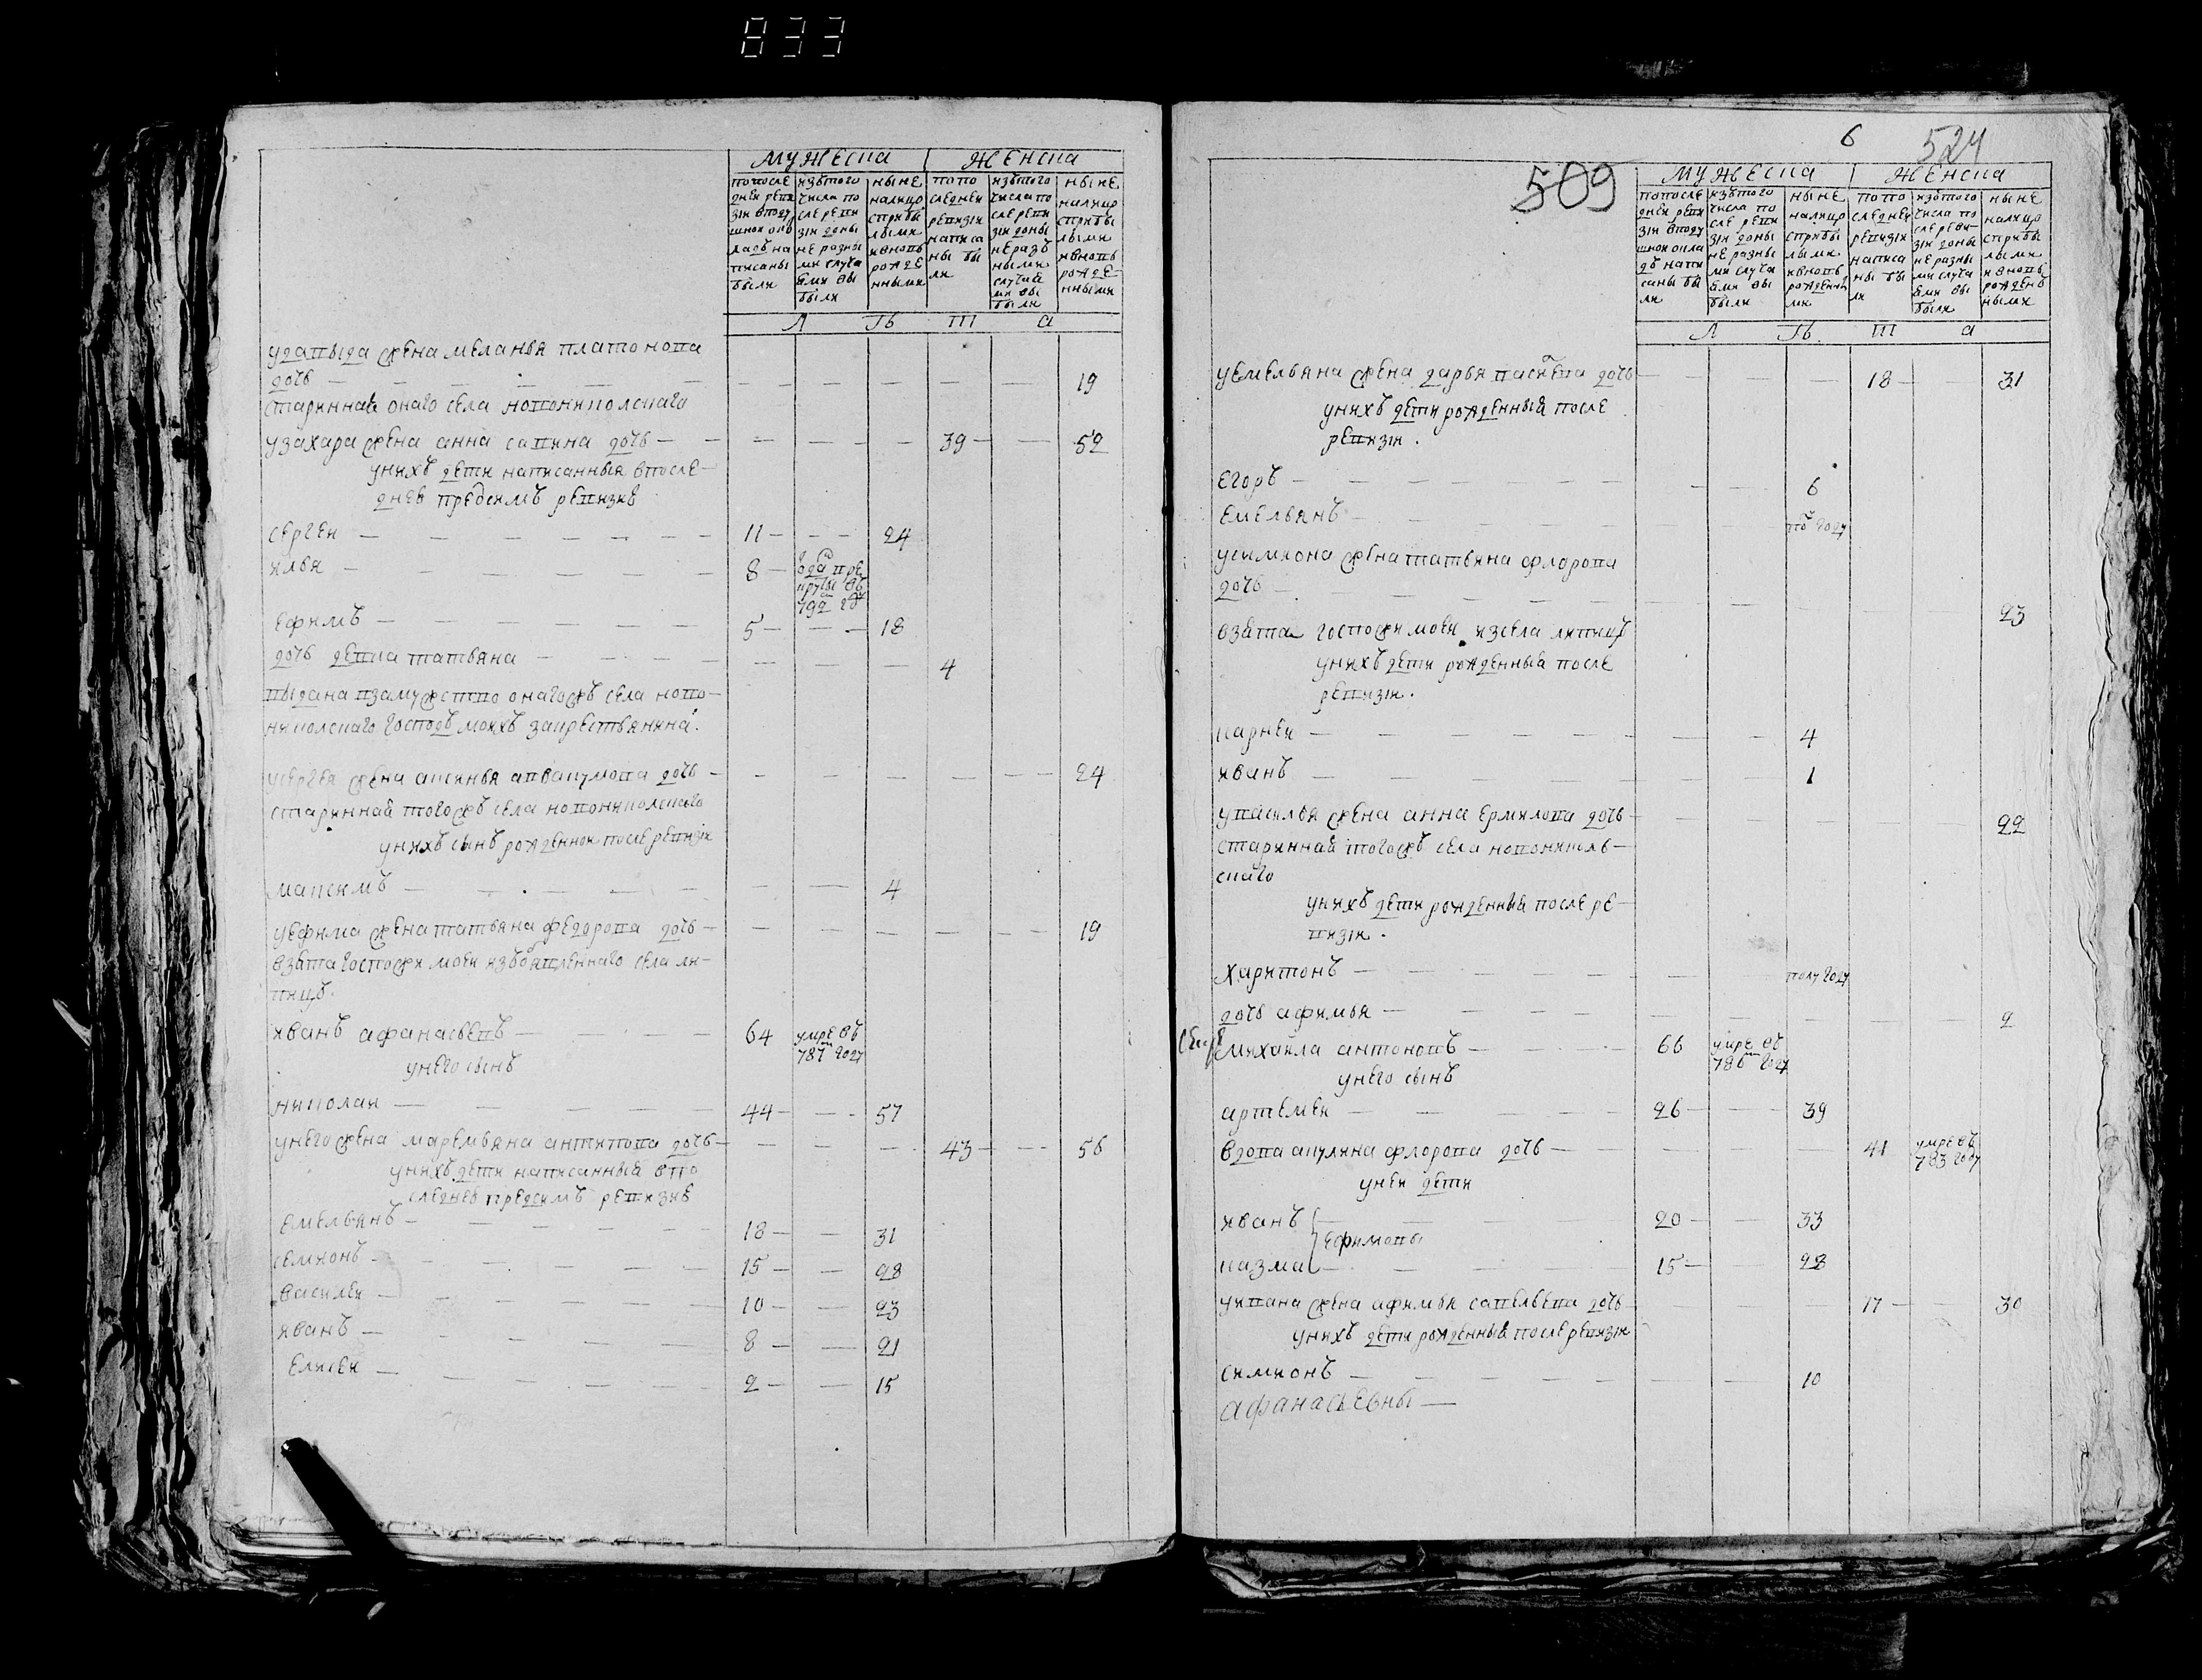 833
мужеска женска
попослѣдней ревизіи вподушной окладъ написаны были
изътого числа после ревизіи доныне разными случаеми выбыли
ныне налицо сприбылыми ивновь рожденными
попоследней ревизіи написаны были
изътого числа после ревизіи доныне разными случаеми выбыли
ныне налицо сприбылыми ивновь рожденными
Л Ѣ Т а
удавыда жена меланья платонова
дочь — 19
стариннаѣ онаго села новоникол­скаго
узахара жена анна савина дочь — 39 — 52
унихъ дети написанныя впосле-
днеѣ предсимъ ревизиѣ
сергеи — 11 — 24
илья — 8 —
792
ефимъ — 5 — 18
дочь девка татьяна — 4
выдана взамужство онагожъ села ново-
николскаго господъ моихъ закрестьянина
усергея жена аксинья аввакумова дочь — 24
стариннаѣ тогожъ села новониколскаго
унихъ сынъ рожденнои после ревизіи
максимъ — 4
уефима жена татьяна федорова дочь — 19
взѣта госпожи моеи изъ села ли-
пицъ
иванъ афанасьевъ — 64 умре въ 787м году
унего сынъ
николаи — 44 — 57
унего жена маремьяна антипова дочь — 43 — 56
унихъ дети написанныѣ впо
следнеѣ предсимъ ревизиѣ
емельянъ — 18 — 31
семионъ — 15 — 28
василеи — 10 — 23
иванъ — 8 — 21
елисеи — 2 — 15
6 524
509
мужеска женска
попоследней ревизіи вподушной окладъ написаны были
изътого числа после ревизіи доныне разными случаеми выбыли
ныне налицо сприбылыми ивновь рожденными
попоследней ревизіи написаны были
изътого числа после ревизіи доныне разными случаеми выбыли
ныне налицо сприбылыми ивновь рожденнными
Л Ѣ Т а
уемельяна жена дарья дочь — 18 — 31
унихъ дети рожденныѣ после
ревизіи.
егоръ — 6
емельянъ — году
усимиона жена татьяна флорова
дочь — 23
взѣта госпожи моеи изсела липицъ
унихъ дети рожденныѣ после
ревизіи.
карнеи — 4
иванъ — 1
увасилья жена анна ермилова дочь — 22
стариннаѣ тогожъ села новониколь-
скаго
унихъ дети рожденныѣ после ре-
визіи.
харитонъ — полугоду
дочь афимья — 2
михаила антоновъ — 66 умре въ 786м году
унего сынъ
артемеи — 26 — 39
вдова акулина флорова дочь — 41 умре въ 783 году
унеи дети
иванъ — 20 — 33
ефимовы
казма — 15 — 28
уивана жена афимья савельева дочь 17 — 30
унихъ дети рожденныѣ после ревизіи
симионъ — 10
афанасьевны —